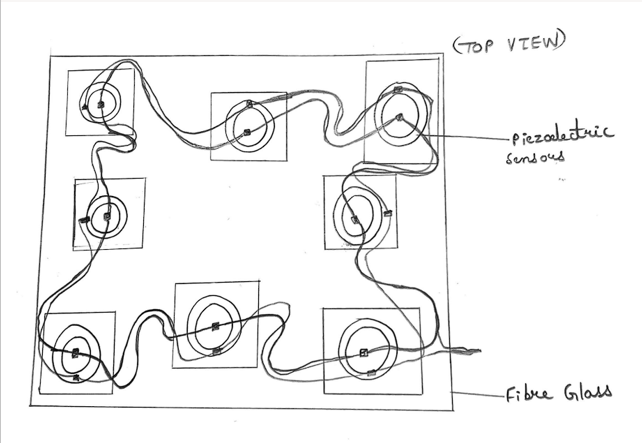 (TOP VIEW)
Piezoelectric
sensors
Fibre Glass